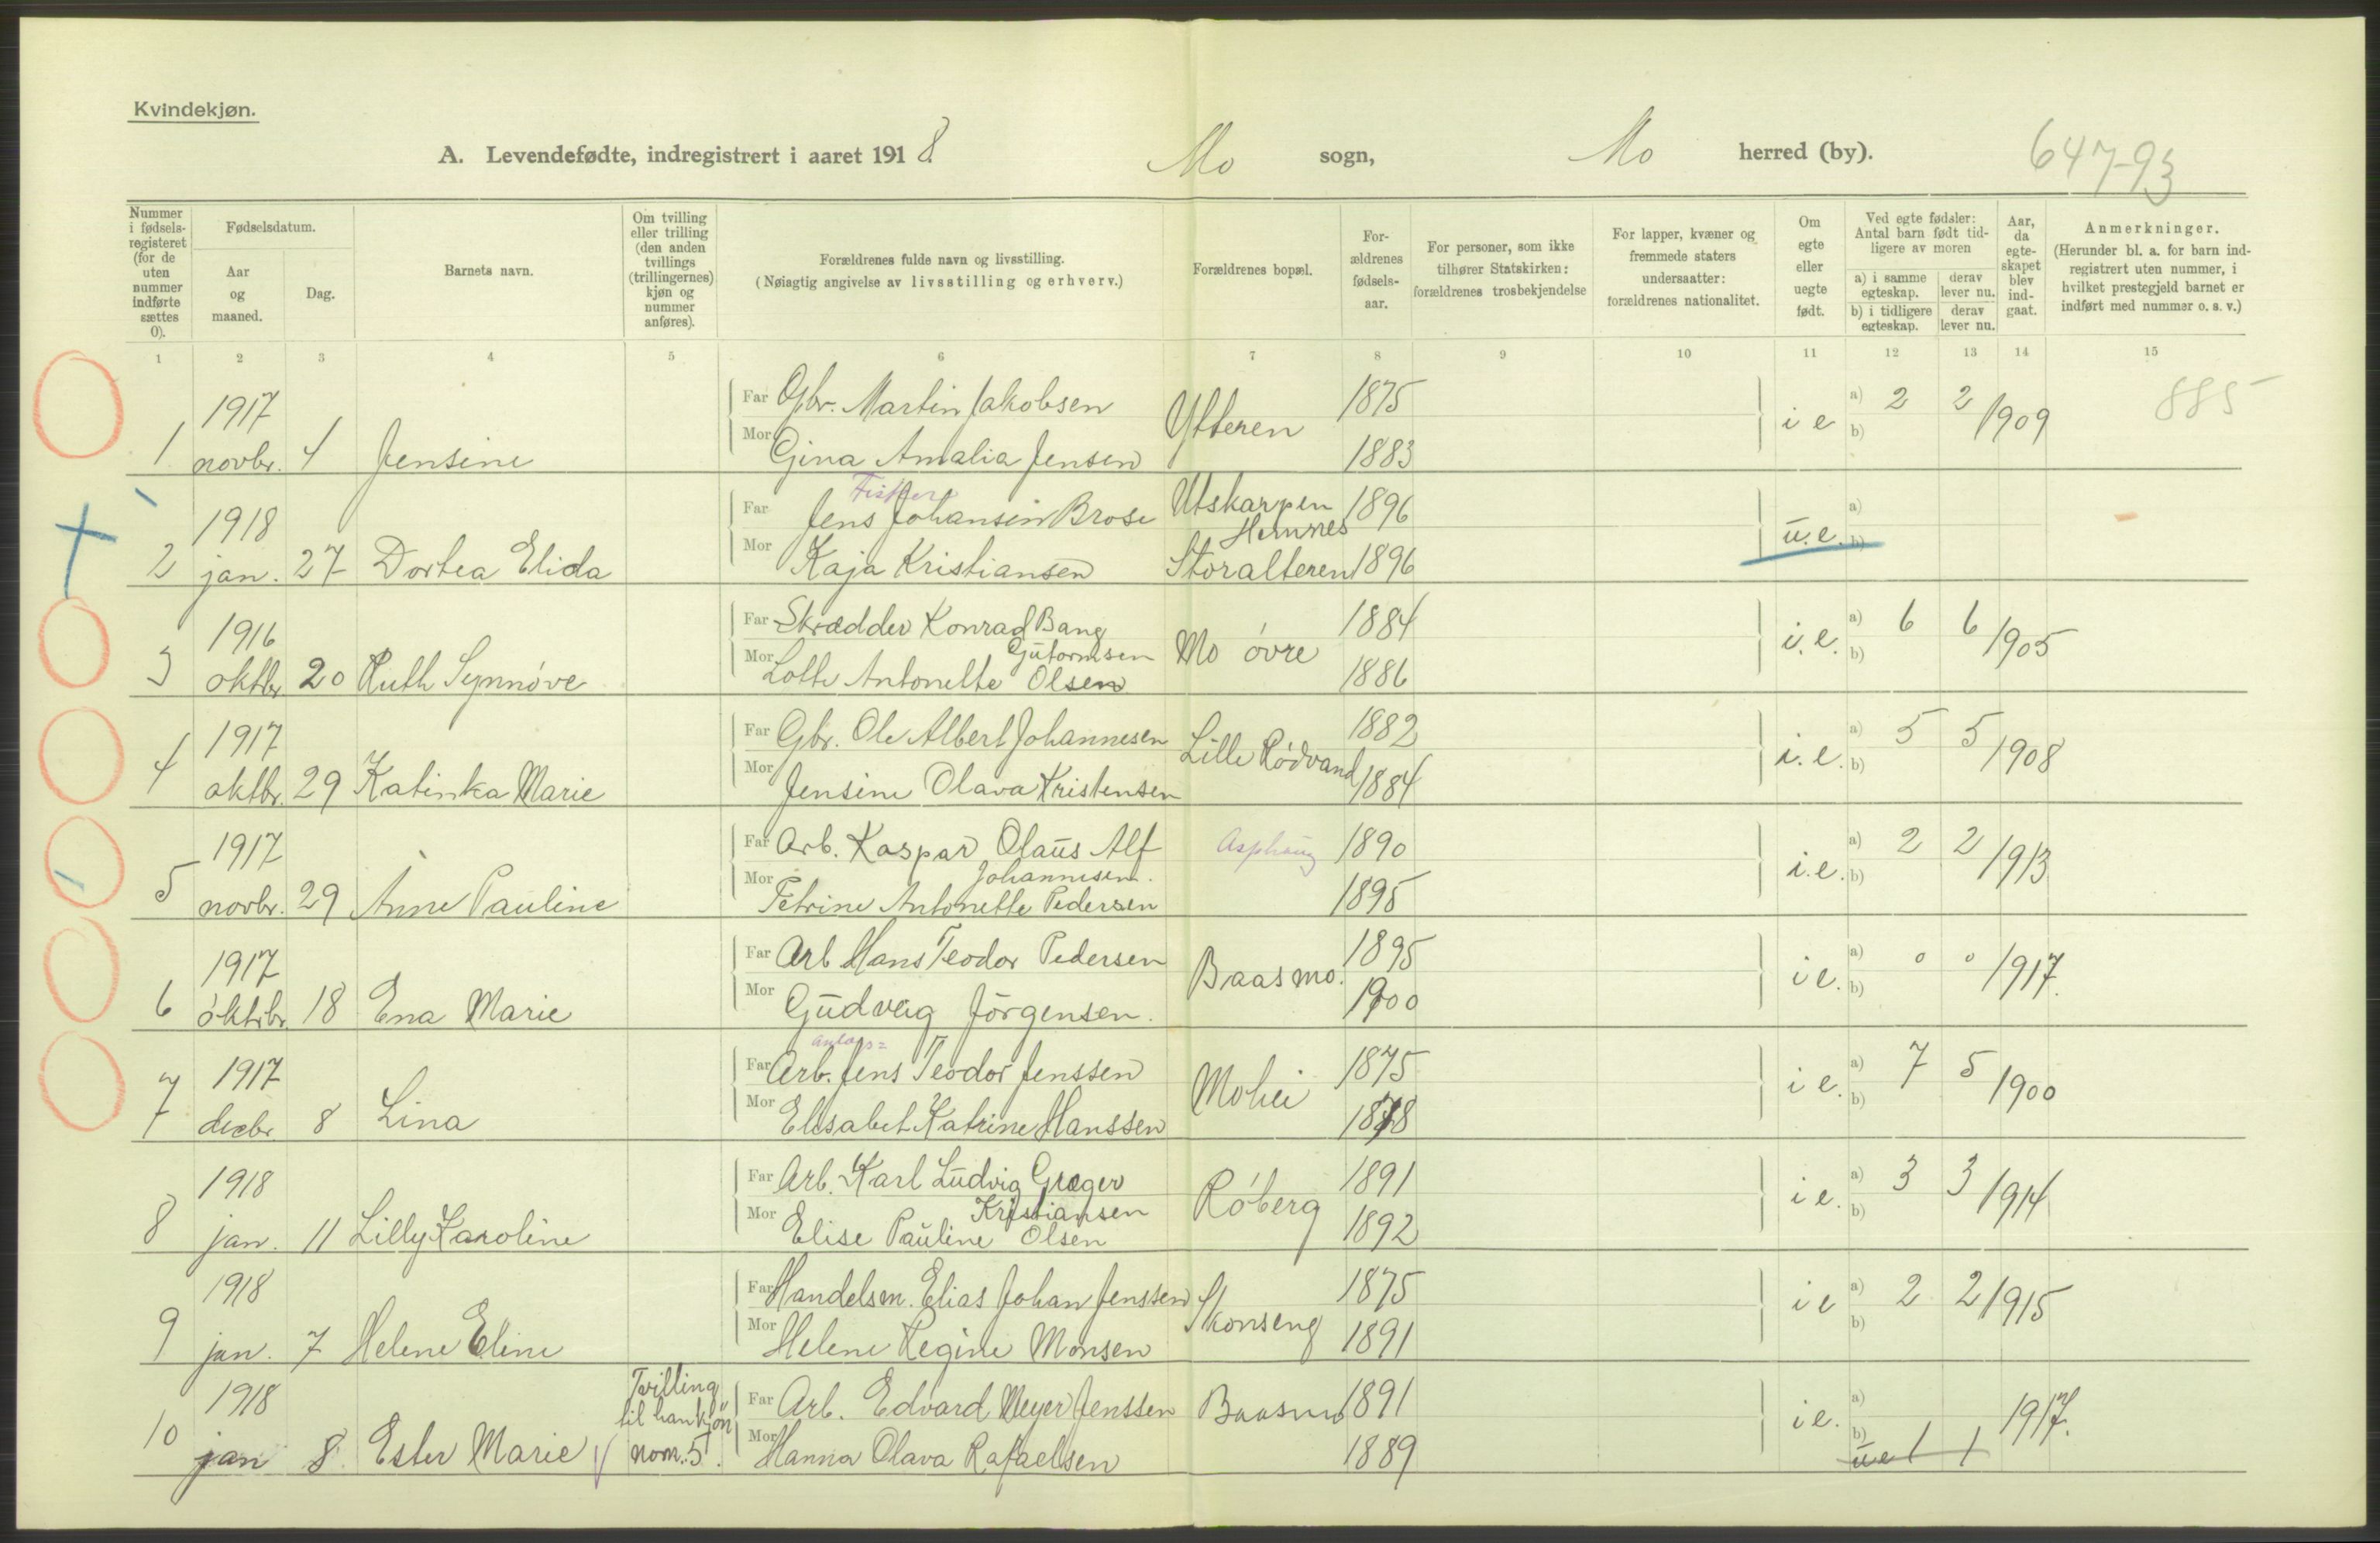 Kvindekjøn.
A. Levendefødte, indregistrert i aaret 1918
Mo sogn, Mo herred (by). 647-93
Nummer i fødsels-registeret (for de uten nummer indførte sættes 0).
Fødselsdatum.
Aar og maaned.
Dag.
Barnets navn.
Om tvilling eller trilling (den anden tvillings (trillingernes) kjøn og nummer anføres).
Forældrenes fulde navn og livsstilling.
(Nøiagtig angivelse av livsstilling og erhverv.)
Forældrenes bopæl.
For-ældrenes fødsels-aar.
For personer, som ikke tilhører Statskirken: forældrenes trosbekjendelse
For lapper, kvæner og fremmede staters undersaatter: forældrenes nationalitet.
Om egte eller uegte født.
Ved egte fødsler: Antal barn født tid-ligere av moren
a) i samme egteskap. derav lever nu.
b) i tidligere egteskap. derav lever nu.
Aar, da egte-skapet blev ind-gaat.
Anmerkninger.
(Herunder bl. a. for barn ind-registrert uten nummer, i hvilket prestegjeld barnet er indført med nummer o. s. v.)
1 2 3 4 5 6 7 8 9 10 11 12 13 14 15
1917 Far Gbr. Martin Jakobsen Ytteren 1875 i e a) 2 2 1909 885
1 novbr. 4 Jensine Mor Gina Amalia Jensen 1883 b)
Fisker
1918 Far Jens Johansen Brose Utskarpen Hemnes 1896 u.e. a)
2 jan. 27 Dortea Elida Mor Kaja Kristiansen Storalteren 1896 b)
1916 Far Skrædder Konrad Bang Gutormsen Mo øvre 1884 i.e. a) 6 6 1905
3 oktbr 20 Ruth Synnøve Mor Lotte Antonette Olsen 1886 b)
1917 Far Gbr. Ole Albert Johannesen Lille Rødvand 1882 i.e. a) 5 5 1908
4 oktbr. 29 Katinka Marie Mor Jensine Olava Kristensen 1884 b)
1917 Far Arb. Kaspar Olaus Alf Johannesen. Asphaug 1890 i.e. a) 2 2 1913
5 novbr. 29 Anne Pauline Mor Petrine Antonette Pedersen 1895 b)
1917 Far Arb Hans Teodor Pedersen Baasmo. 1895 i e. a) 0 0 1917.
6 oktbr 18 Ena Marie Mor Gudveig Jørgensen. 1900 b)
anlægs=
1917 Far Arb. Jens Teodor Jenssen Mohei 1875 i e. a) 7 5 1900
7 decbr 8 Lina Mor Elisabet Katrine Hanssen 1878 b)
1918 Far Arb. Karl Ludvig Græger Kristiansen Røberg 1891 i e. a) 3 3 1914
8 jan. 11 Lilly Karoline Mor Elise Pauline Olsen 1892 b)
1918 Far Handelsm. Elias Johan Jenssen Skonseng 1875 i e a) 2 2 1915
9 jan. 7 Helene Eline Mor Helene Regine Monsen 1891 b)
1918 Tvilling til hankjøn nom. 5. Far Arb. Edvard Meyer Jenssen Baasmo 1891 i e. a) 1917.
10 jan 8. Ester Marie Mor Hanna Olava Rafaelsen 1889 b) ue 1 1